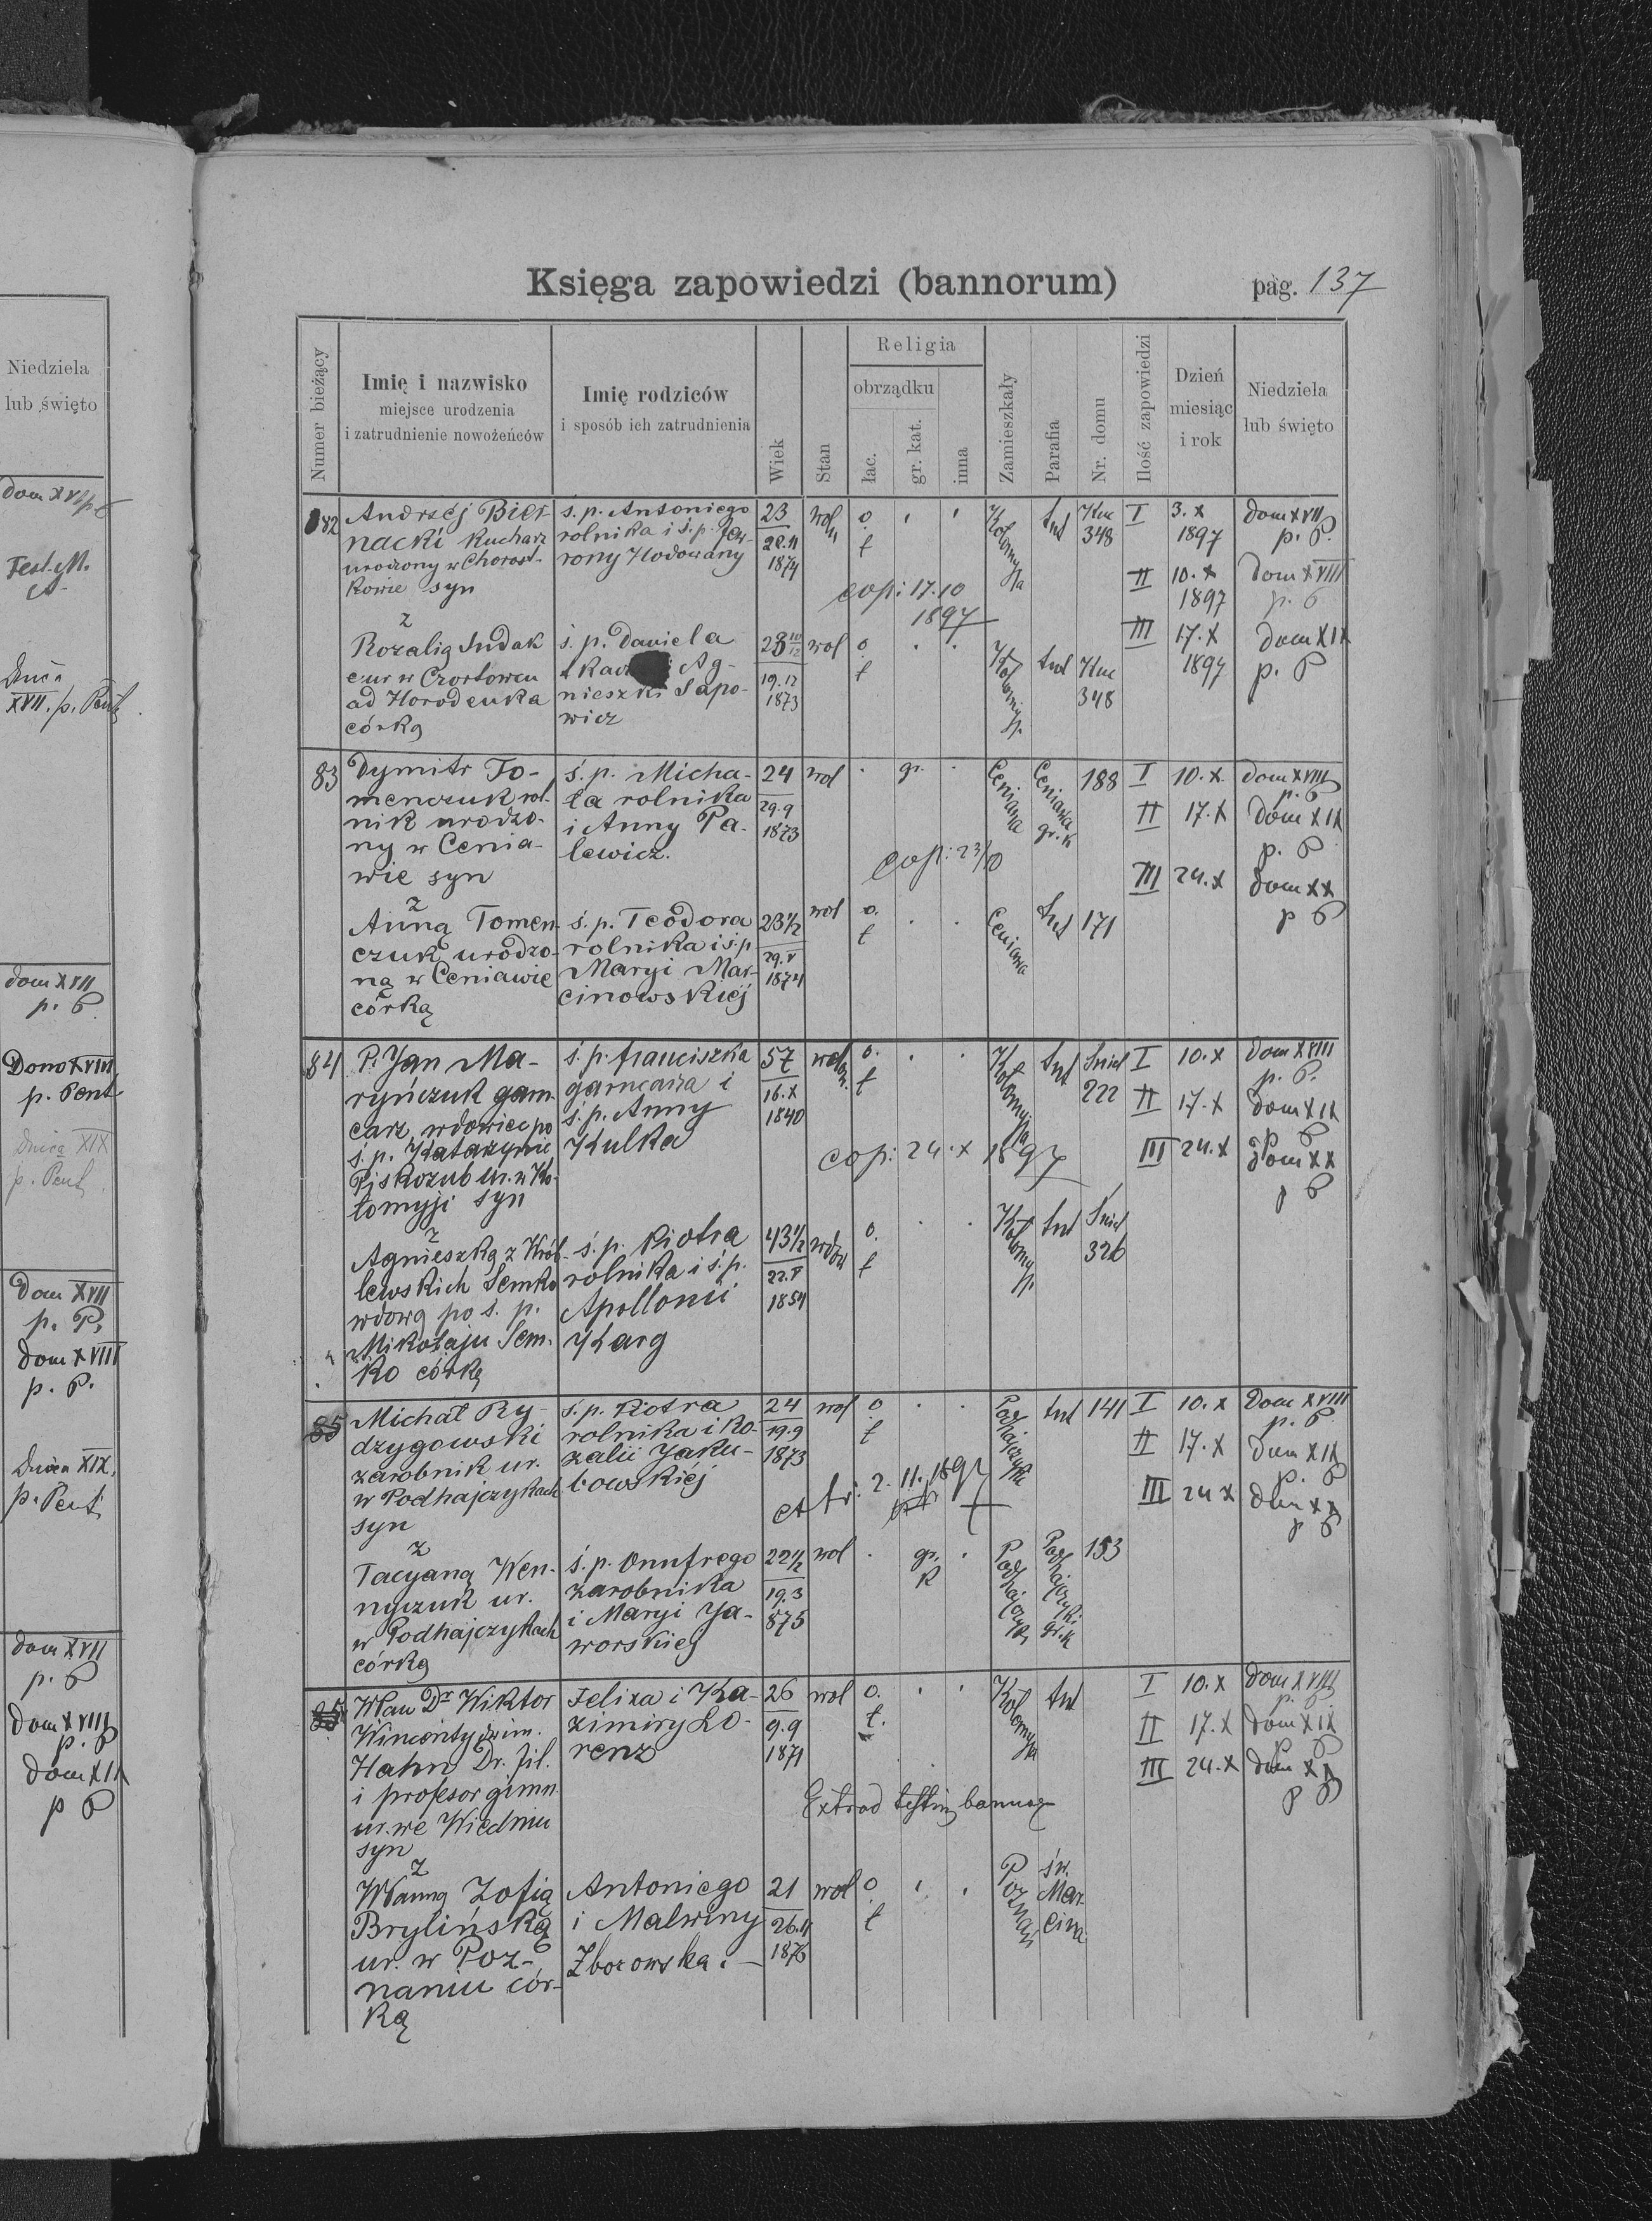 Niedziela
lub święto
Dom XVII p P
Fest. M.
Dnica
XVII. p. Pent
dom XVII
p. P.
Dom XVIII
p. Pent
Dnica XIX
p. Pent
Dom XVII
p. P.
dom XVIII
p. P.
Dnica XIX.
p. Pent
dom XVII
p. P
dom XVIII
p. P
dom XIX
p P
Księga zapowiedzi (bannorum)
pag. 137
Numer bieżący
Imię i nazwisko
miejsce urodzenia
i zatrudnienie nowożeńców
Imię rodziców
i sposób ich zatrudnienia
Wiek
Stan
Religia
obrządku
łac.
gr. kat.
inna
Zamieszkały
Parafia
Nr. domu
Ilość zapowiedzi
Dzień
miesiąc
i rok
Niedziela
lub święto
82
Andrzej Bier-
nacki kucharz
urodzony w Chorost-
kowie syn
z
Rozalią Sudak
ur w Czortowcu
ad Horodenka
córką
ś. p. Antoniego
rolnika i ś. p.
rony Hodowany
ś. p. Daniela
Ag-
nieszki Sapo-
wicz
23
22.11
1874
woln
o.
ł
Kołomyja
348
cop: 17.10
1897
23 10/12
19.12
1873
wol
o
ł
Kołomyja
348
I 3. X
1897
dom XVII
p. P.
II 10. X
1897
Dom XVIII
p. P
III 17. X
1897
dom XIX
p. P
83
Dymitr To-
menczuk rol-
nik urodzo-
ny w Cenia-
wie syn
z
Anną Tomen-
czuk urodzo-
ną w Ceniawie
córką
ś. p. Micha-
ła rolnika
i Anny Pa-
lewicz.
ś. p. Teodora
rolnika i ś. p
Maryi Mar-
cinowskiéj
24
29.9
1873
wol
gr.
Ceniawa
Ceniawa
gr. k
188
cop: 23/10
23 1/2
29. V
1874
wol
o.
ł
Ceniawa
171
I 10. X.
dom XVIII
p. P
II 17. X
dom XIX
p. P
III 24. X
dom XX
p P
84
P. Jan Ma-
ryńczuk garn-
carz wdowiec po
ś. p. Katarzynie
Piskozub ur. w Ko-
łomyji syn
z
Agnieszką z Król-
lewskich Semko
wdową po ś. p.
Mikołaju Sem-
ko córką
ś. p. Franciszka
garncarza i
ś. p. Anny
Kulka
ś. p. Piotra
rolnika i ś. p.
Apollonii
Karg
57
16. X
1840
o.
ł
Kołomyja
222
cop: 24. X 1897
43 1/2
22. V
1854
wdow
o.
ł
Kołomyja
326
I 10. X
dom XVIII
p. P.
II 17. X
dom XIX
p P
III 24. X
dom XX
p P
85
Michał Ry-
dzygowski
zarobnik ur.
w Podhajczykach
syn
z
Tacyaną Wen-
nyczuk ur.
w Podhajczykach
córką
ś. p. Piotra
rolnika i Ro-
zalii Jaku-
bowskiéj
ś. p. Onufrego
zarobnika
i Maryi Ja-
worskiej
24
19.9
1873
wol
o.
ł
Podhajczyki
141
2. 11. 1897
22 1/2
19.3
875
wol
gr.
k
Podhajczyki
Podhajczyki
gr. k
153
I 10. X
Dom XVIII
p. P
II 17. X
dom XIX
p. P
III 24 X
dom XX
p P
WPan Dr Wiktor
Wincenty dw im.
Hahn Dr. fil.
i profesor gimn.
ur. we Wiedniu
syn
z
WPanną Zofią
Brylińską
ur. w Poz-
naniu cór-
ką
Felixa i Ka-
zimiry Lo-
renz
Antoniego
i Malwiny
Zborowska. —
26
9.9
1871
wol
o.
ł.
Kołomyja
Extrad testim bannor
21
26.11
1876
wol
o
ł
Poznań
św.
Mar-
cina
I 10. X
dom XVIII
p. P
II 17. X
dom XIX
p P
III 24. X
dom XX
p P